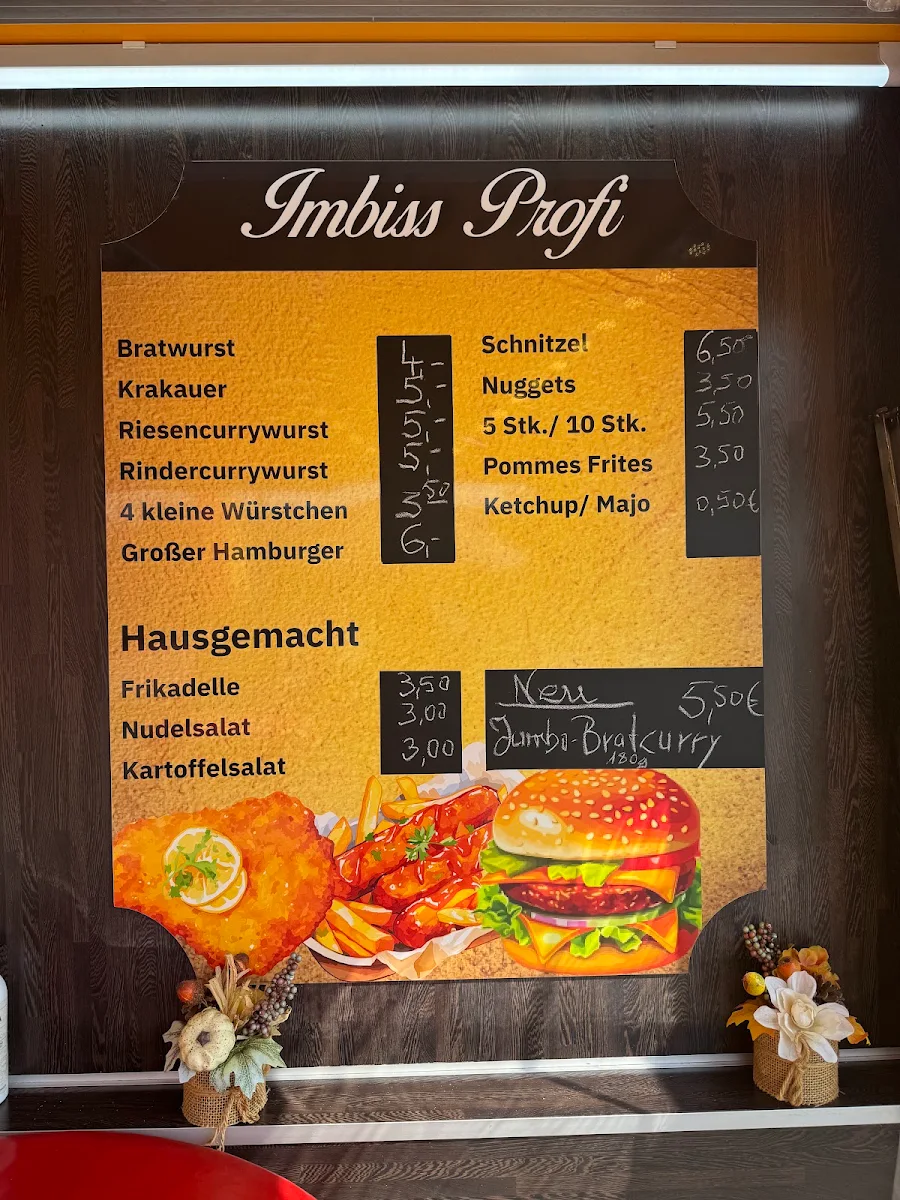 Imbiss Profi
Bratwurst 4,-
Krakauer 5,-
Riesencurrywurst 5,-
Rindercurrywurst 5,-
4 kleine Würstchen 3,50
Großer Hamburger 6,-
Schnitzel 6,50
Nuggets 3,50
5 Stk./ 10 Stk. 5,50
Pommes Frites 3,50
Ketchup/ Majo 0,50€
Hausgemacht
Frikadelle 3,50
Nudelsalat 3,00
Kartoffelsalat 3,00
Neu 5,50€
Jumbo-Bratcurry
180g